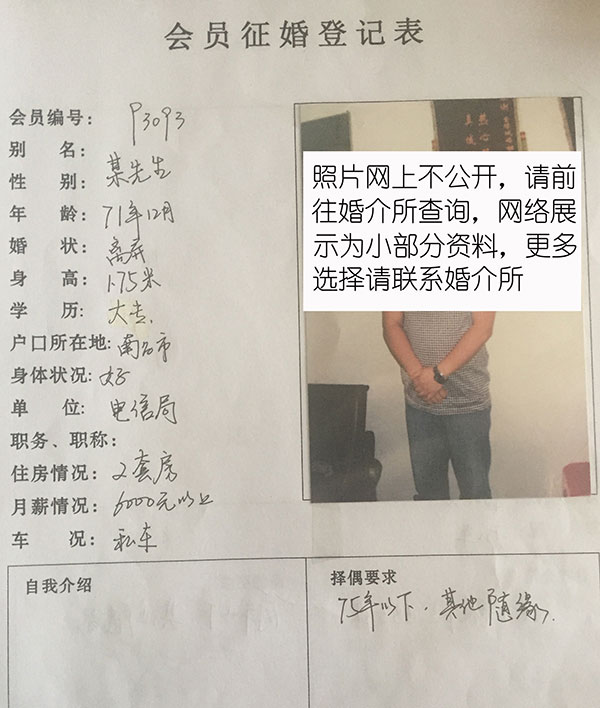 会员征婚登记表
会员编号： P3093
别 名： 某先生
性 别：
年 龄： 71年12月
婚 状： 离异
身 高： 1.75米
学 历： 大专
户口所在地: 南宁市
身体状况: 好
单 位: 电信局
职务、职称：
住房情况： 2套房
月薪情况： 6000元以上
车 况： 私车
照片网上不公开，请前
往婚介所查询，网络展
示为小部分资料，更多
选择请联系婚介所
自我介绍
择偶要求
75年以下．其他随缘